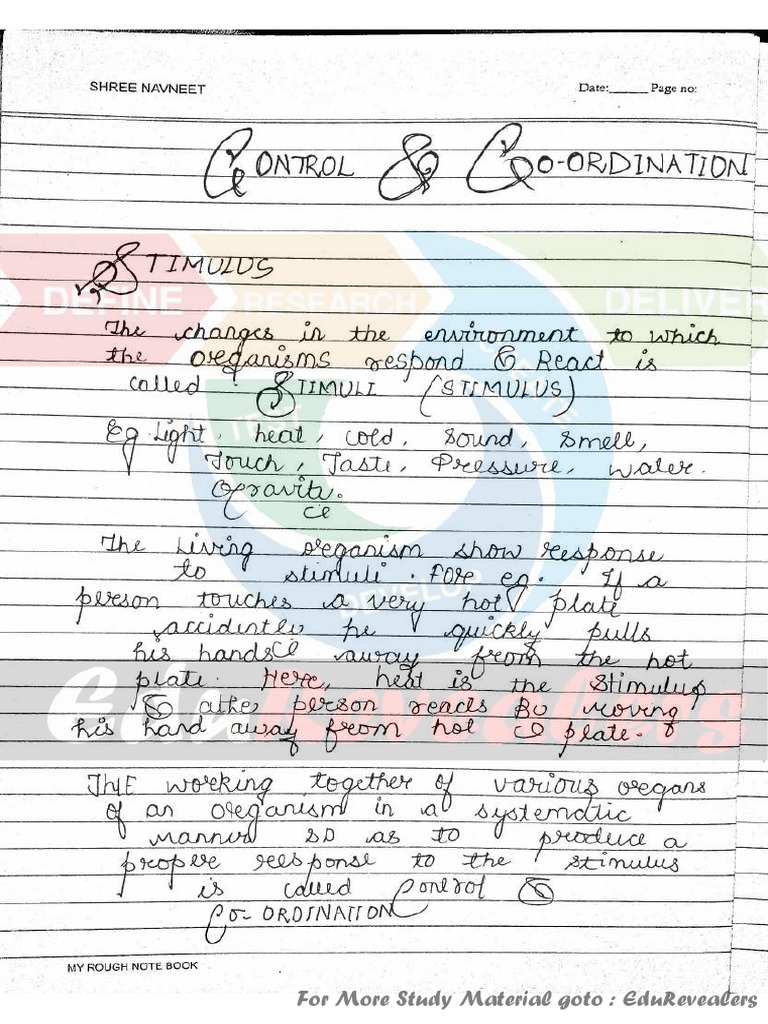 SHREE NAVNEET
Date:______ Page no:
CONTROL & CO-ORDINATION
STIMULUS
DEFINE RESEARCH DELIVER
The changes in the environment to which
the organisms respond & React is
called STIMULI (STIMULUS)
TEST
Eg. Light, heat, cold, Sound, Smell,
Touch, Taste, Pressure, water.
Gravity.
The Living organism show response
to stimuli. For eg. If a
DEVELOP
person touches a very hot plate
accidently he quickly pulls
his hands away from the hot
plate. Here, heat is the Stimulus
EduRevealers
& athe person reacts By moving
his hand away from hot plate.
THE working together of various organs
of an organism in a systematic
manner so as to produce a
proper response to the stimulus
is called Control &
Co-ORDINATION
MY ROUGH NOTE BOOK
For More Study Material goto : EduRevealers